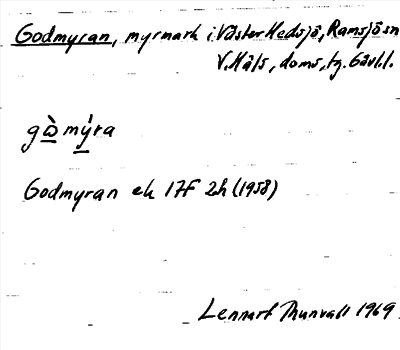 Godmyran, myrmark i Väster Hedsjö, Ramsjö sn
V. Häls., doms., tg. Gävl.l.
gò̱ mý̱ra
Godmyran ek 17F 2h (1958)
Lennart Thunvall 1969